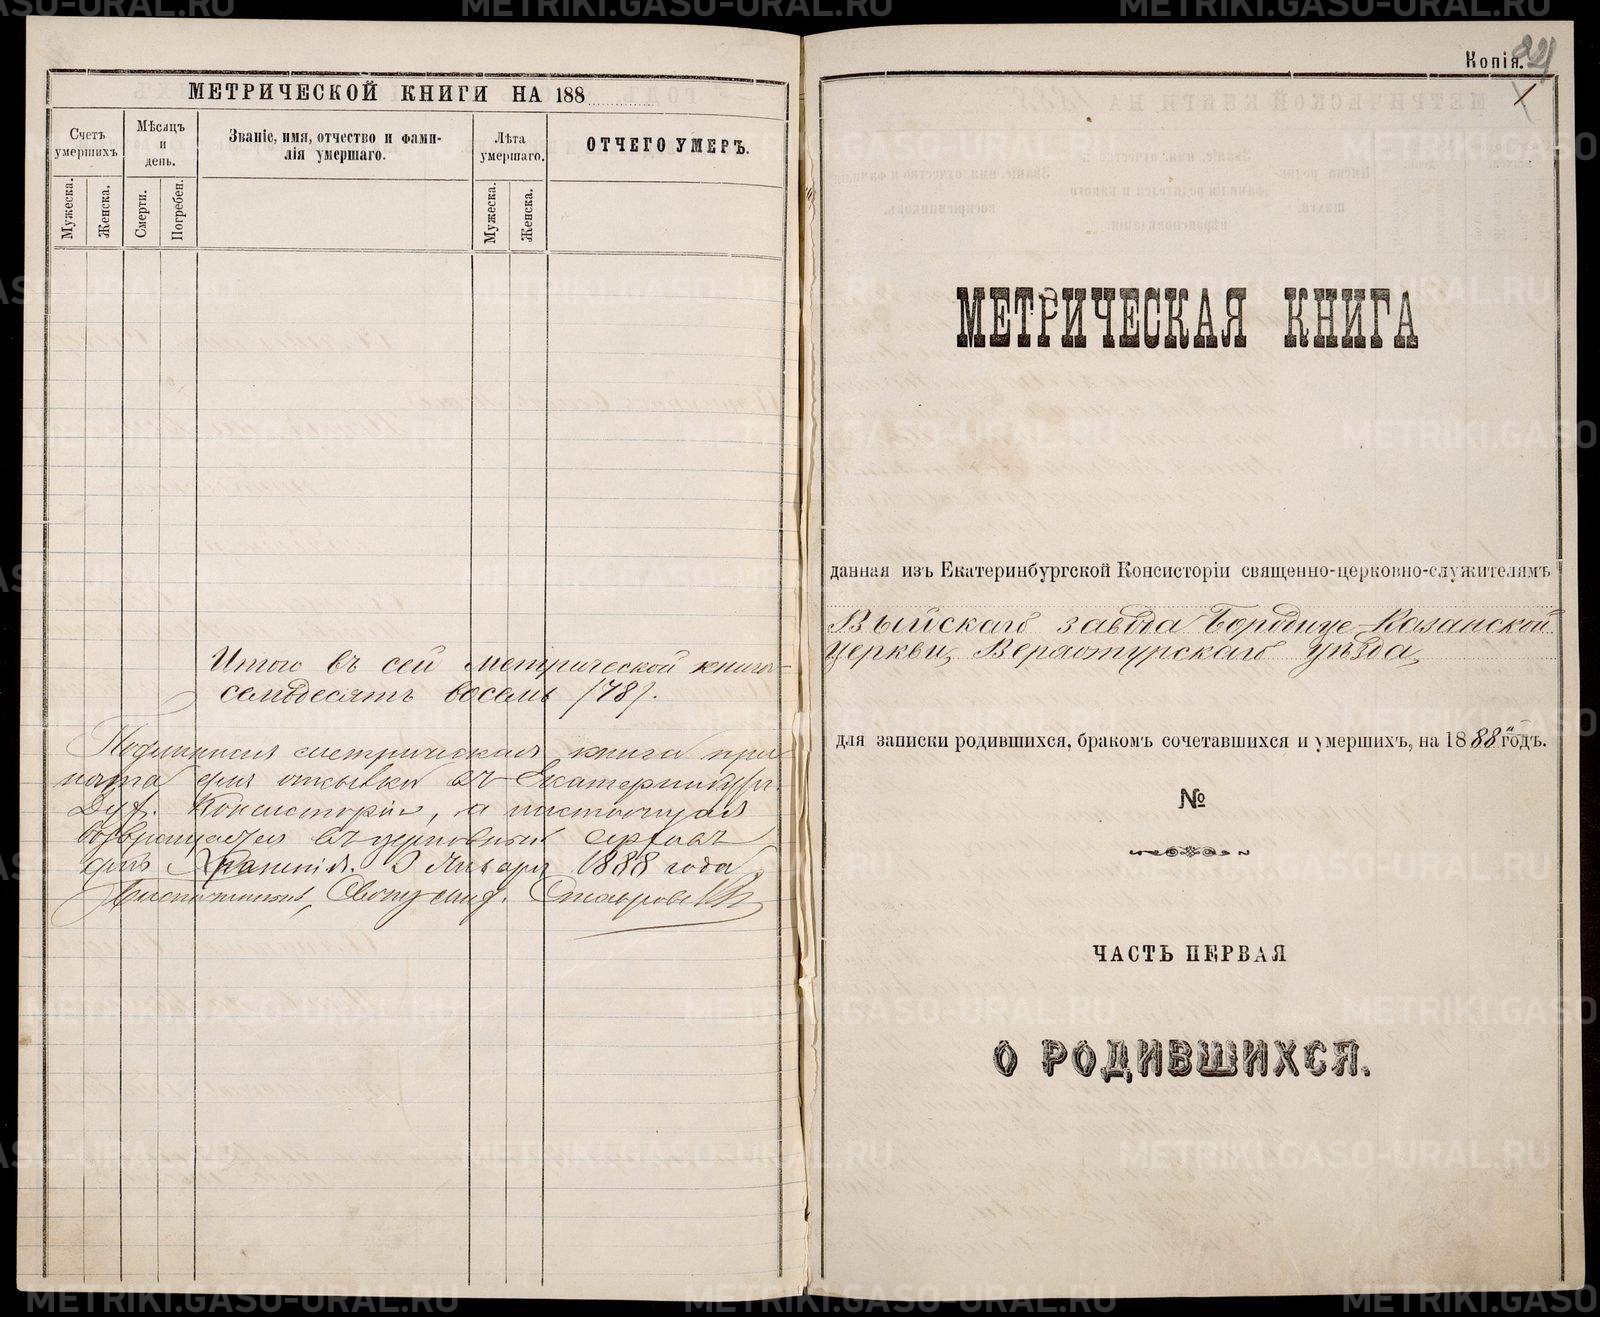 МЕТРИЧЕСКОЙ КНИГИ НА 188
Счетъ умершихъ
Мѣсяцъ и день.
Званіе, имя, отчество и фами-
лія умершаго.
Лѣта умершаго.
ОТЧЕГО УМЕРЪ.
Мужеска.
Женска.
Смерти.
Погребен.
Мужеска.
Женска.
Итого въ сей метрической книге
семьдесятъ восемь /78/.
Подлинная метрическая книга при
нята для отсылки въ Екатеринбург.
Дух. Консисторію, а настоящая
возвращается въ церковный архивъ
для храненія. Января 1888 года
Копія.
МЕТРИЧЕСКАЯ КНИГА
данная изъ Екатеринбургской Консисторіи священно-церковно-служителямъ
Выйскаго завода Бородице-Казанской
церкви, Верхотурскаго уѣзда,
для записки родившихся, бракомъ сочетавшихся и умершихъ, на 1888 годъ.
№
ЧАСТЬ ПЕРВАЯ
О РОДИВШИХСЯ.
METRIKI.GASO-URAL.RU